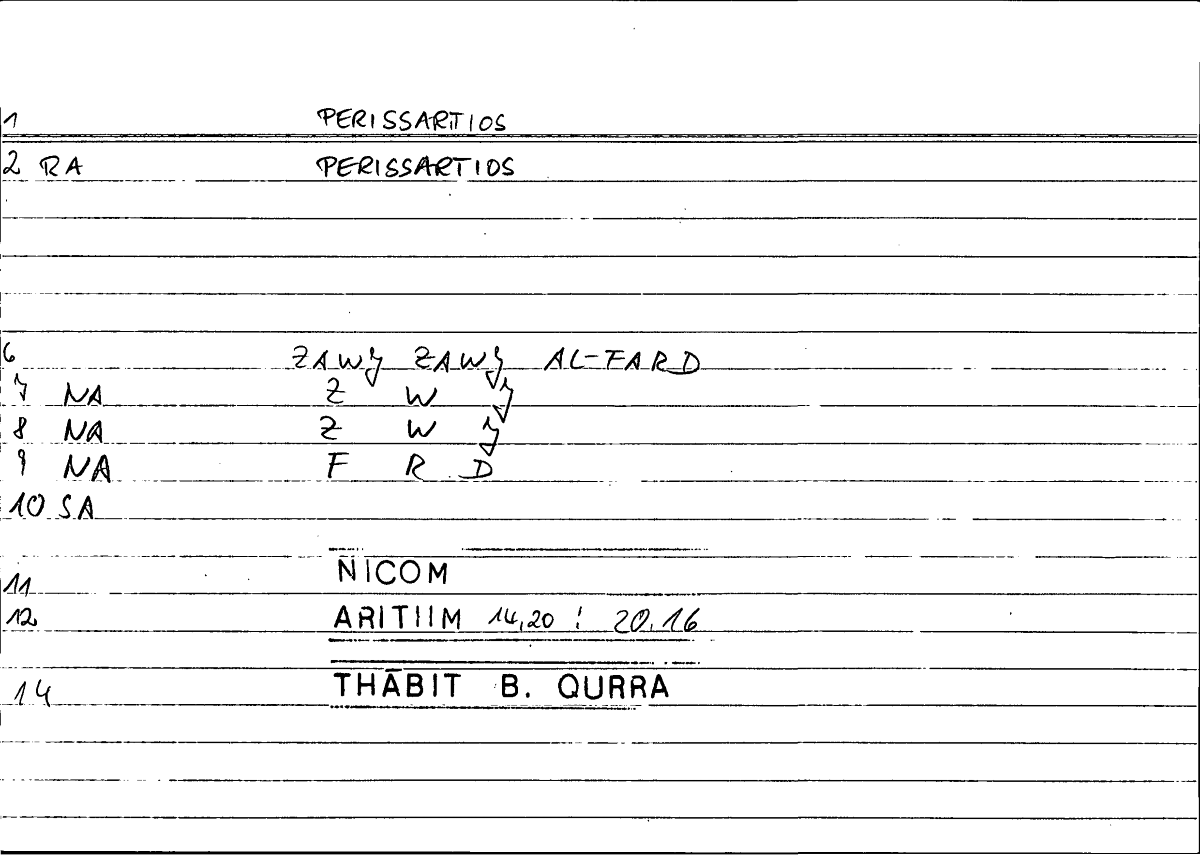 1 PERISSARTIOS
2 RA PERISSARTIOS
6 ZAWJ ZAWJ AL-FARD
7 NA Z W J
8 NA Z W J
9 NA F R D
10 SA
11 NICOM
12 ARITIIM 14,20 : 20,16
14 THĀBIT B. QURRA